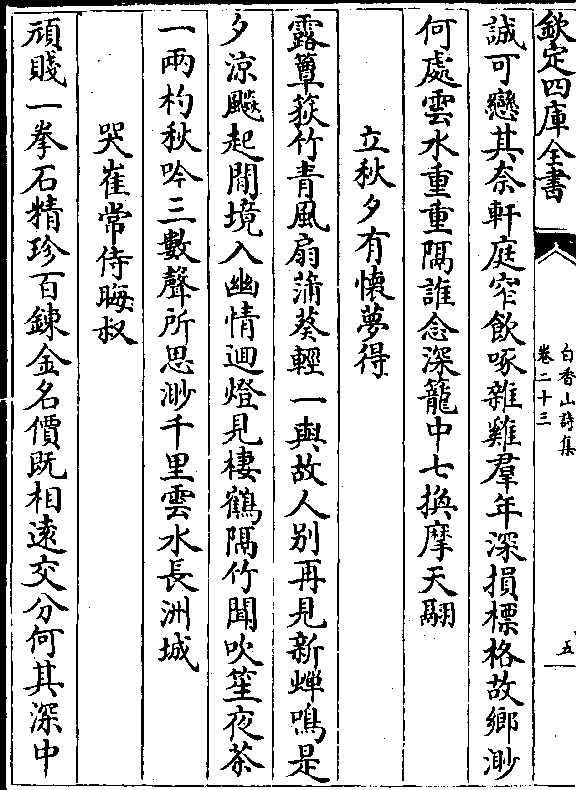 欽定四庫全書
白香山詩集
卷二十三
五
誠可戀其奈軒庭窄飲啄雜雞羣年深損標格故鄉渺
何處雲水重重隔誰念深籠中七換摩天翮
立秋夕有懷夢得
露簟荻竹青風扇蒲葵輕一與故人别再見新蟬鳴是
夕涼飈起閒境入幽情迴燈見棲鶴隔竹聞吹笙夜茶
一兩杓秋吟三數聲所思渺千里雲水長洲城
哭崔常侍晦叔
頑賤一拳石精珍百鍊金名價既相遠交分何其深中